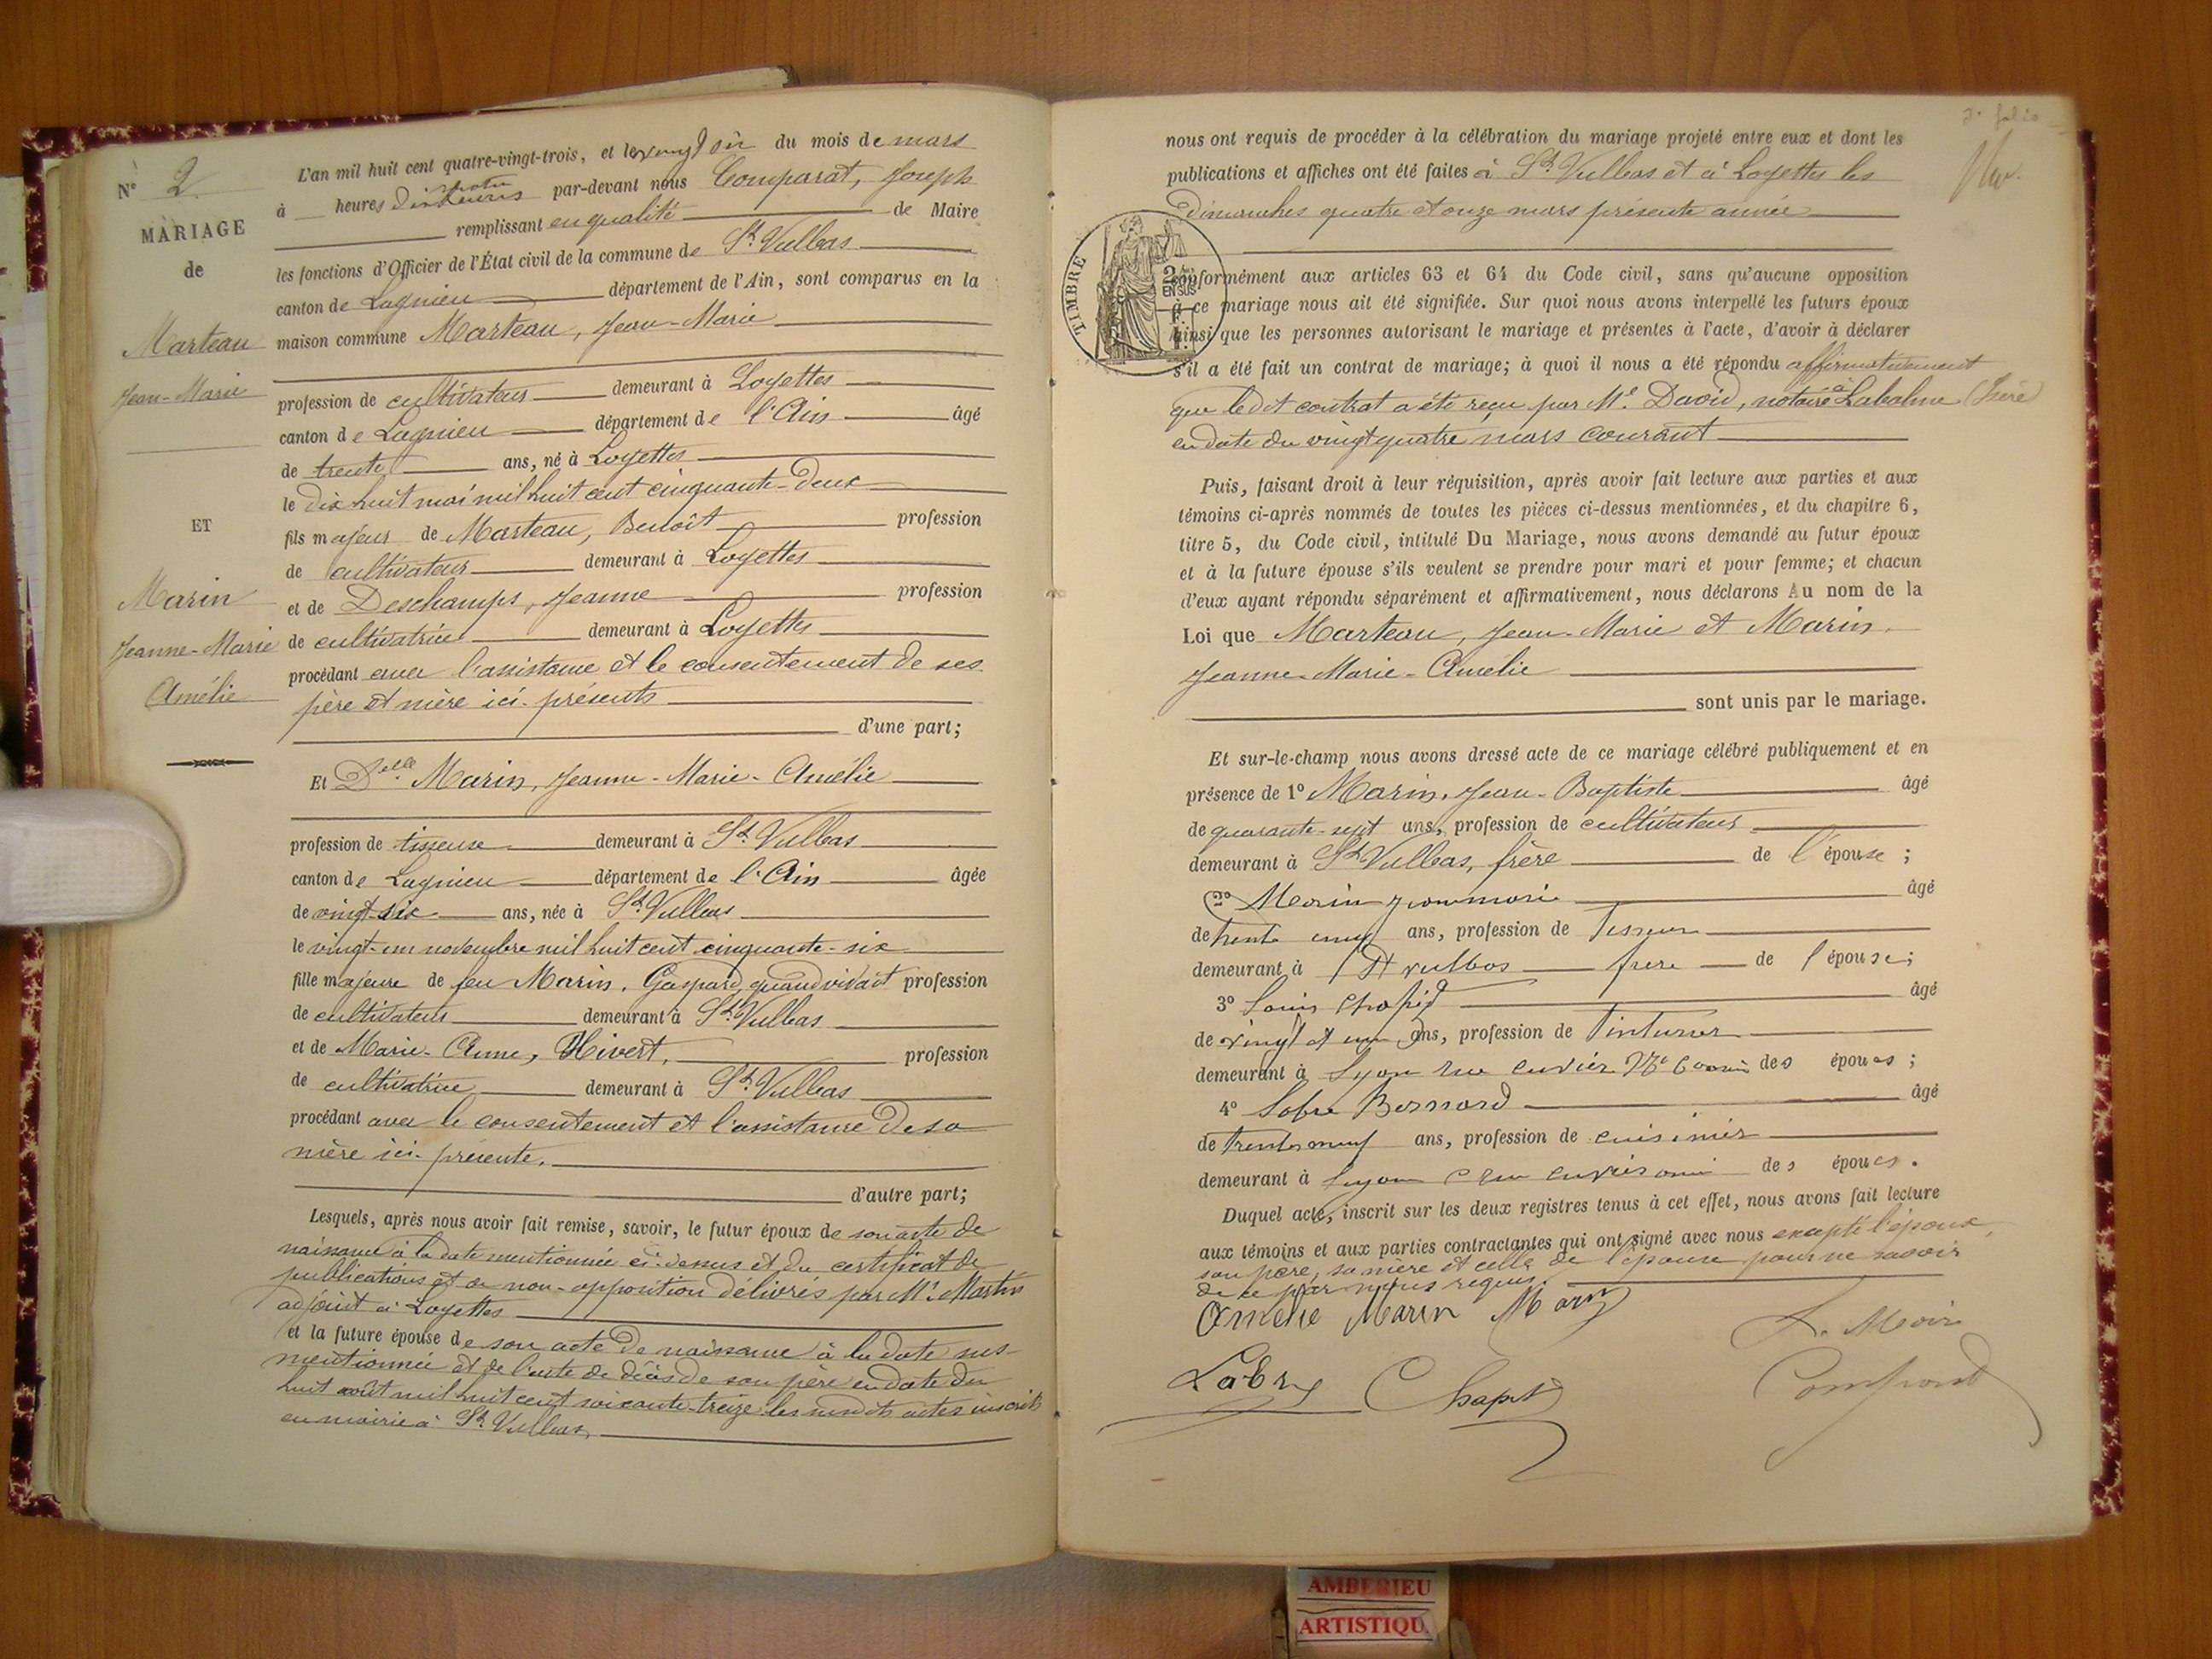 Nº 2
MARIAGE
de
Marteau
Jean-Marie
ET
Marin
Jeanne-Marie
Amélie
L'an mil huit cent quatre-vingt-trois, et le vingt six du mois de mars
à heures par-devant nous Comparat, Joseph
remplissant en qualité de Maire
les fonctions d'Officier de l'État civil de la commune de St. Vulbas
canton de Lagnieu département de l'Ain, sont comparus en la
maison commune Marteau, Jean-Marie
profession de cultivateur demeurant à Loyettes
canton de Lagnieu département de l'Ain âgé
de trente ans, né à Loyettes
le dix huit mai mil huit cent cinquante-deux
fils majeur de Marteau, Benoît profession
de cultivateur demeurant à Loyettes
et de Deschamps, Jeanne profession
de cultivatrice demeurant à Loyettes
procédant avec l'assistance et le consentement de ses
père et mère ici-présents
d'une part;
Et Delle Marin, Jeanne-Marie-Amélie
profession de tisseuse demeurant à St. Vulbas
canton de Lagnieu département de l'Ain âgée
de vingt six ans, née à St. Vulbas
le vingt-un novembre mil huit cent cinquante-six
fille majeure de feu Marin, Gaspard, quand vivait profession
de cultivateur demeurant à St. Vulbas
et de Marie-Anne, Hivert, profession
de cultivatrice demeurant à St. Vulbas
procédant avec le consentement et l'assistance de sa
mère ici-présente.
d'autre part;
Lesquels, après nous avoir fait remise, savoir, le futur époux de son acte de
naissance à la date mentionnée ci-dessus et du certificat de
publications et de non-opposition délivrés par Mr. Martin
adjoint à Loyettes
et la future épouse de son acte de naissance à la date sus-
mentionnée et de l'acte de décès de son père en date du
huit août mil huit cent soixante-treize les susdits actes inscrits
en mairie à St. Vulbas,
3e folio
nous ont requis de procéder à la célébration du mariage projeté entre eux et dont les
publications et affiches ont été faites à St. Vulbas et à Loyettes les
dimanches quatre et onze mars présente année
TIMBRE
2
EN SUS
conformément aux articles 63 et 64 du Code civil, sans qu'aucune opposition
à ce mariage nous ait été signifiée. Sur quoi nous avons interpellé les futurs époux
ainsi que les personnes autorisant le mariage et présentes à l'acte, d'avoir à déclarer
s'il a été fait un contrat de mariage; à quoi il nous a été répondu affirmativement
que ledit contrat a été reçu par Me. David, notaire à Labalme (Isère)
en date du vingt quatre mars courant
Puis, faisant droit à leur réquisition, après avoir fait lecture aux parties et aux
témoins ci-après nommés de toutes les pièces ci-dessus mentionnées, et du chapitre 6,
titre 5, du Code civil, intitulé Du Mariage, nous avons demandé au futur époux
et à la future épouse s'ils veulent se prendre pour mari et pour femme; et chacun
d'eux ayant répondu séparément et affirmativement, nous déclarons Au nom de la
Loi que Marteau, Jean-Marie et Marin,
Jeanne-Marie-Amélie
sont unis par le mariage.
Et sur-le-champ nous avons dressé acte de ce mariage célébré publiquement et en
présence de 1º Marin, Jean-Baptiste âgé
de quarante-sept ans, profession de cultivateur
demeurant à St. Vulbas, frère de l'épouse;
2º Marin jean marie âgé
de trente ans, profession de Tisseur
demeurant à St vulbas frere de l'épouse;
3º Louis âgé
de vingt et un ans, profession de Tinturier
demeurant à Lyon rue cuvier Nº 6 ami des époux;
4º Bernard âgé
de trente neuf ans, profession de cuisinier
demeurant à Lyon rue ami des époux.
Duquel acte, inscrit sur les deux registres tenus à cet effet, nous avons fait lecture
aux témoins et aux parties contractantes qui ont signé avec nous excepté l'époux,
son père, sa mère et celle de l'épouse pour ne savoir
de ce par nous requis.
Amelie Marin Marin
Chapit
AMBERIEU
ARTISTIQU